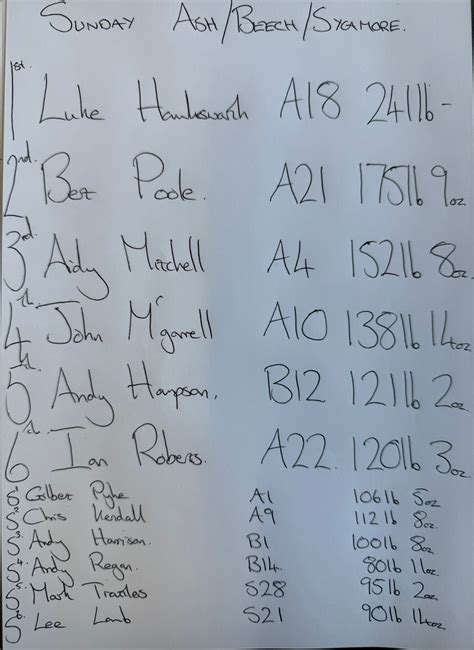 SUNDAY ASH/BEECH/SYCAMORE.
1st. Luke Hawksworth A18 241lb -
2nd. Bez Poole. A21 175lb 9oz
3rd. Aidy Mitchell A4 152lb 8oz
4th. John McGarrell A10 138lb 14oz
5th. Andy Hampson. B12 121lb 2oz
6th. Ian Roberts. A22. 120lb 3oz
S1 Gilbert Pyke A1 106lb 5oz
S2 Chris Kendall A9 112lb 8oz
S3 Andy Harrison. B1 100lb 8oz
S4 Andy Regan. B14 80lb 11oz
S5 Mark S28 95lb 2oz
S6 Lee Lamb S21 90lb 14oz